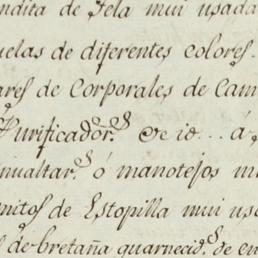 ndita de Tela mui usada
uelas de diferentes colores.
ares de Corporales de Cam
Purificador.s de id... á
inualtar.s ó manotejos mu
mitos de Estopilla mui usa
s de bretaña guarnecid.s de en